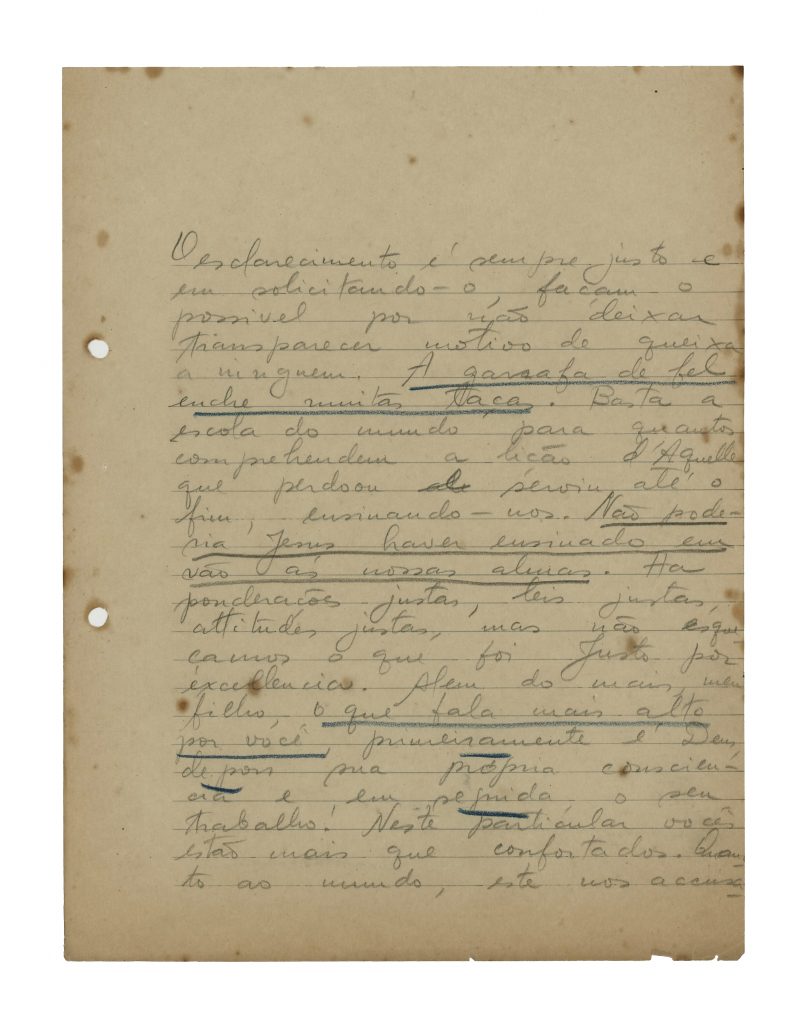 O esclarecimento é sempre justo e
em solicitando-o, façam o
possivel por não deixar
transparecer motivo de queixa
a ninguem. A garrafa de fel
enche muitas taças. Basta a
escola do mundo para quantos
comprehendem a lição d'Aquelle
que perdoou e serviu até o
fim, ensinando-nos. Não pode-
ria Jesus haver ensinado em
vão ás nossas almas. Ha
ponderações justas, leis justas,
attitudes justas, mas não esque
çamos o que foi Justo por
excellencia. Alem do mais, meu
filho, o que fala mais alto
por você, primeiramente é Deus,
depois sua própria conscien-
cia e em seguida o seu
trabalho! Neste particular vocês
estão mais que confortados. Quan-
to ao mundo, este nos accusa